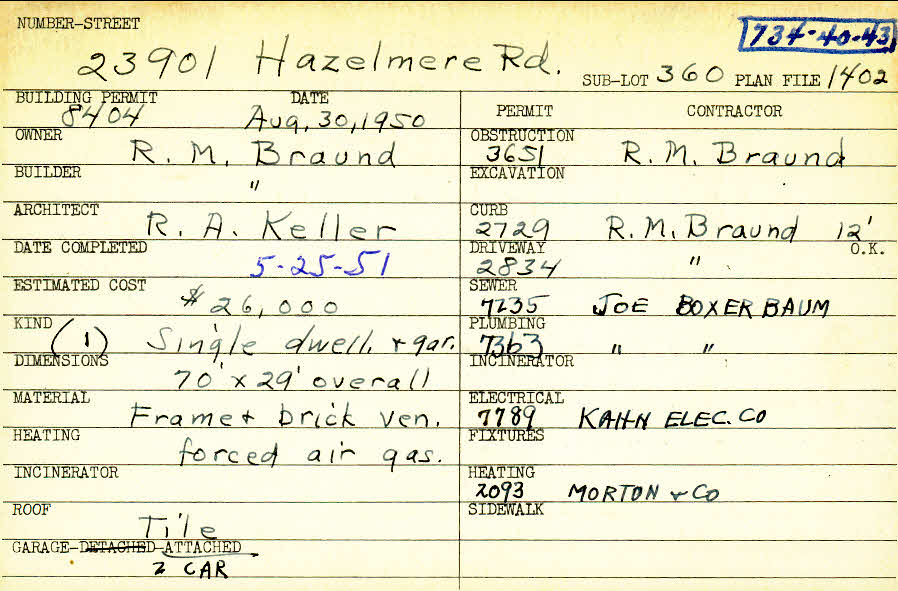 NUMBER-STREET
734-40-43
23901 Hazelmere Rd.
SUB-LOT 360 PLAN FILE 1402
BUILDING PERMIT DATE
8404 Aug. 30, 1950
OWNER
R. M. Braund
BUILDER
"
ARCHITECT
R. A. Keller
DATE COMPLETED
5-25-51
ESTIMATED COST
$26,000
KIND
(1) Single dwell. + gar.
DIMENSIONS
70' x 29' overall
MATERIAL
Frame + brick ven.
HEATING
forced air gas.
INCINERATOR
ROOF
Tile
GARAGE-DETACHED-ATTACHED
2 CAR
PERMIT CONTRACTOR
OBSTRUCTION
3651 R. M. Braund
EXCAVATION
CURB
2729 R. M. Braund 12'
DRIVEWAY O.K.
2834 "
SEWER
7235 JOE BOXERBAUM
PLUMBING
7363 " "
INCINERATOR
ELECTRICAL
7789 KAHN ELEC. CO
FIXTURES
HEATING
2093 MORTON + CO
SIDEWALK